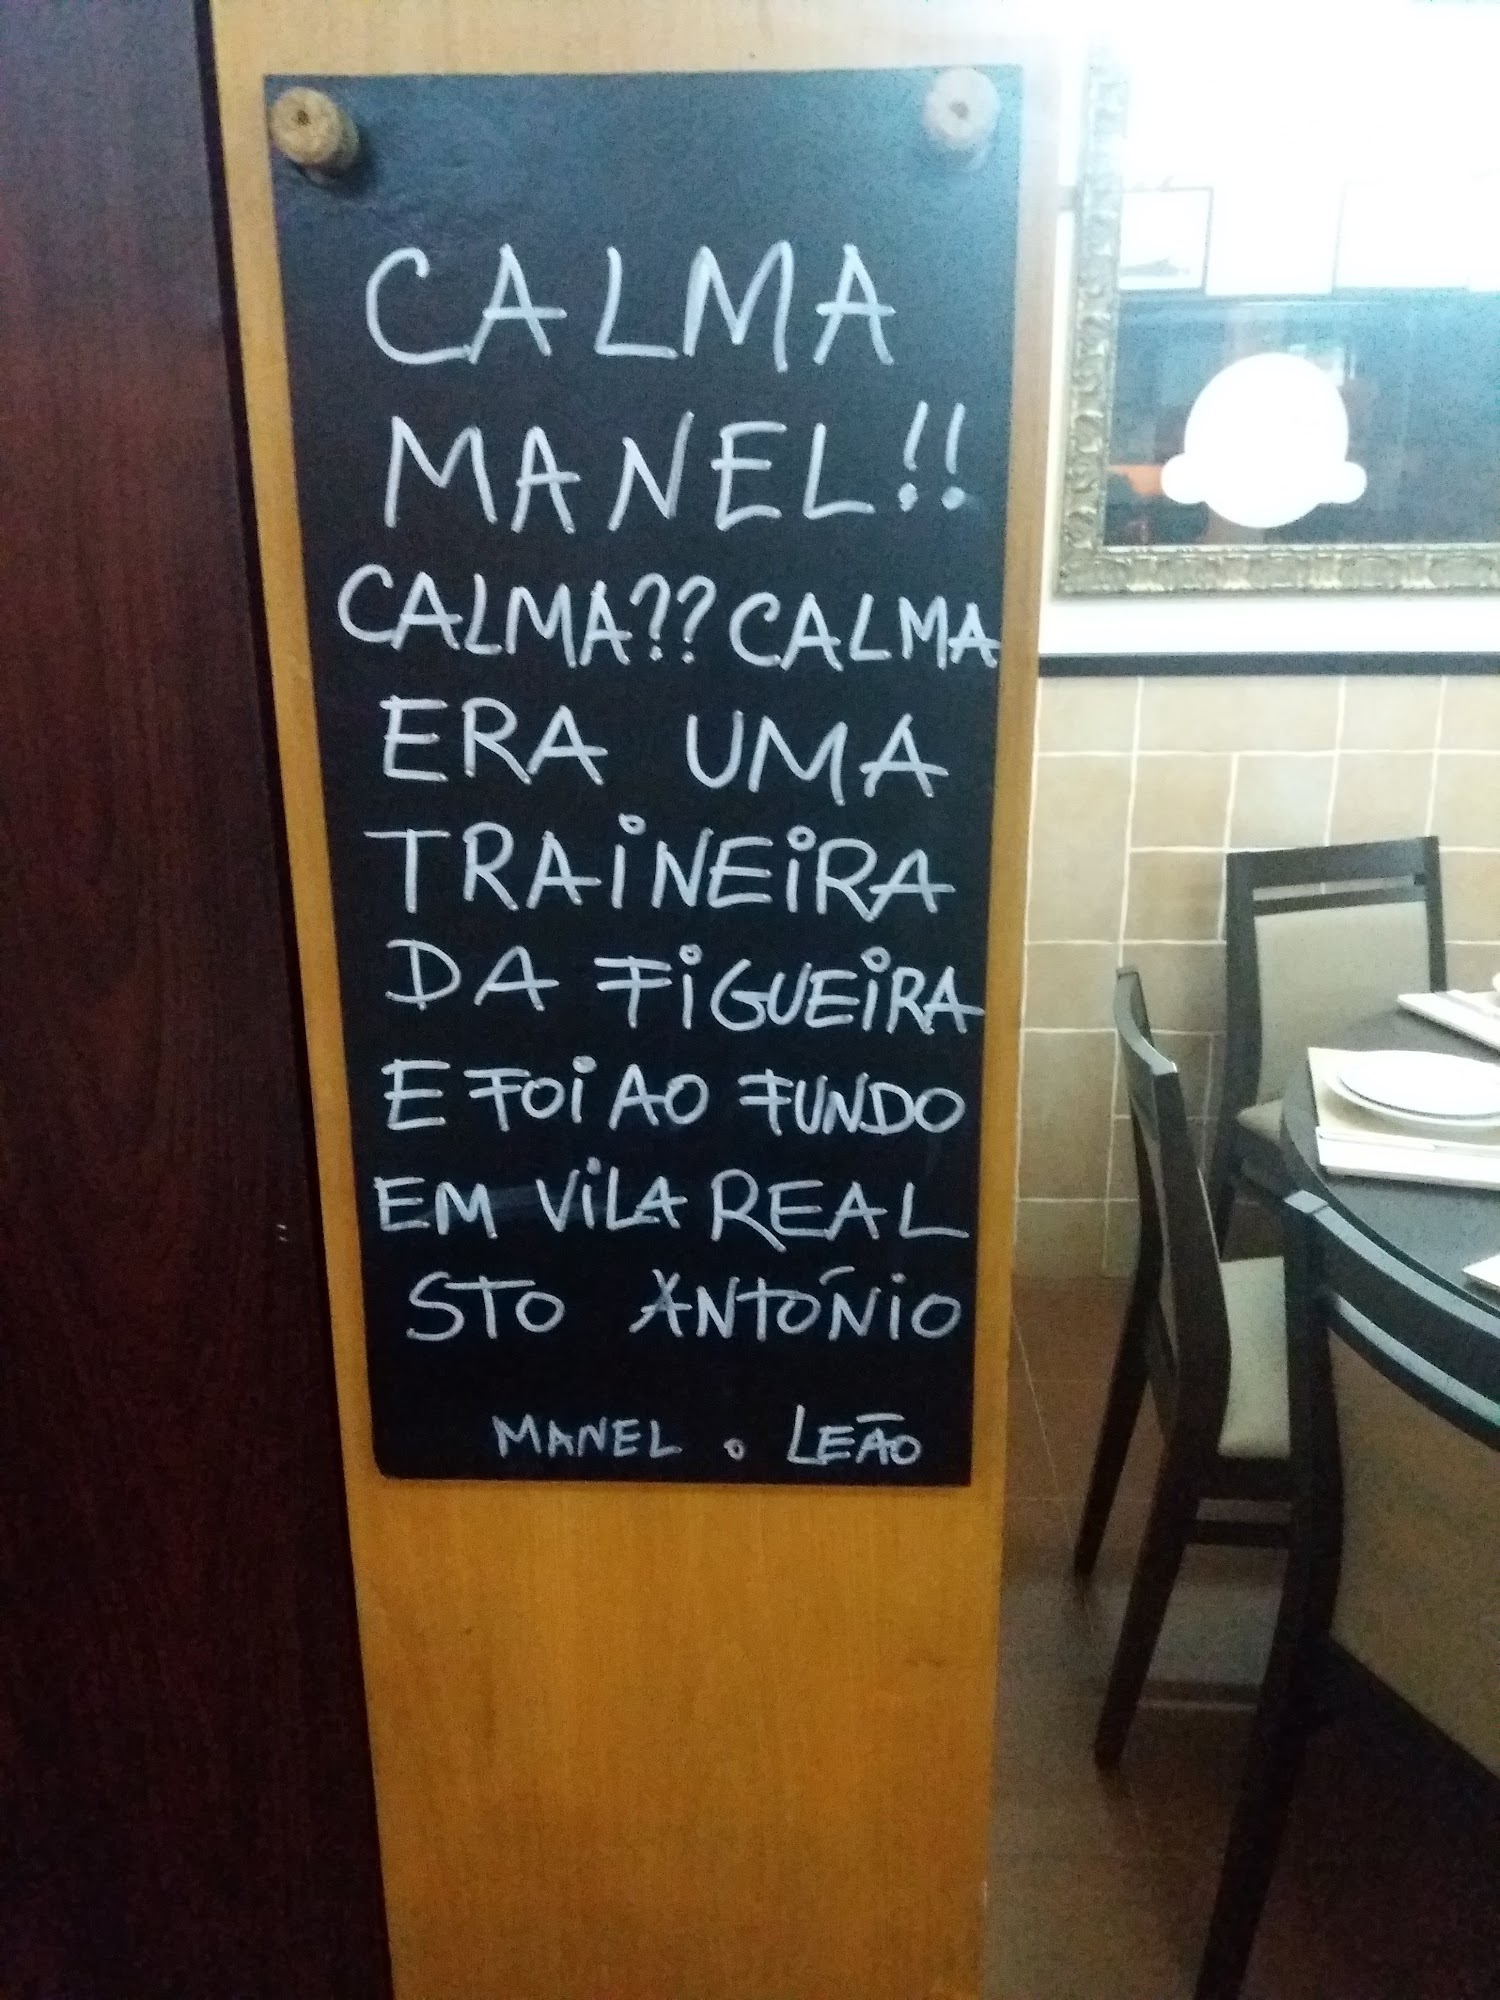 CALMA
MANEL!!
CALMA?? CALMA
ERA UMA
TRAiNEiRA
DA FiGUEiRA
E FOi AO FUNDO
EM ViLA REAL
STO ANTÓNiO
MANEL . LEÃO